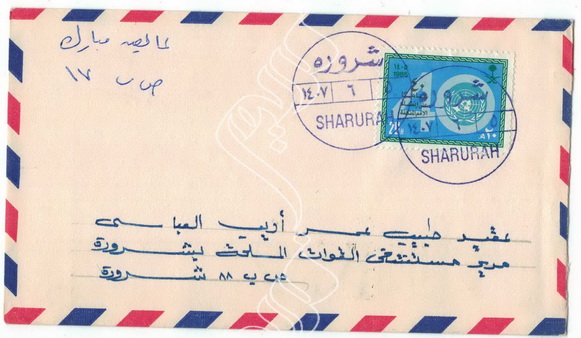 مبارك
ص ب ١٧
شرورة
١٤٠٧ ٦ ٥
SHARURAH
١٤٠٥
1985
شرورة
١٤٠٧ ٦ ٥
SHARURAH
عقيد طبيب عمر أديب العباسي
مدير مستشفى القوات المسلحة بشرورة
ص ب ٨٨ شرورة